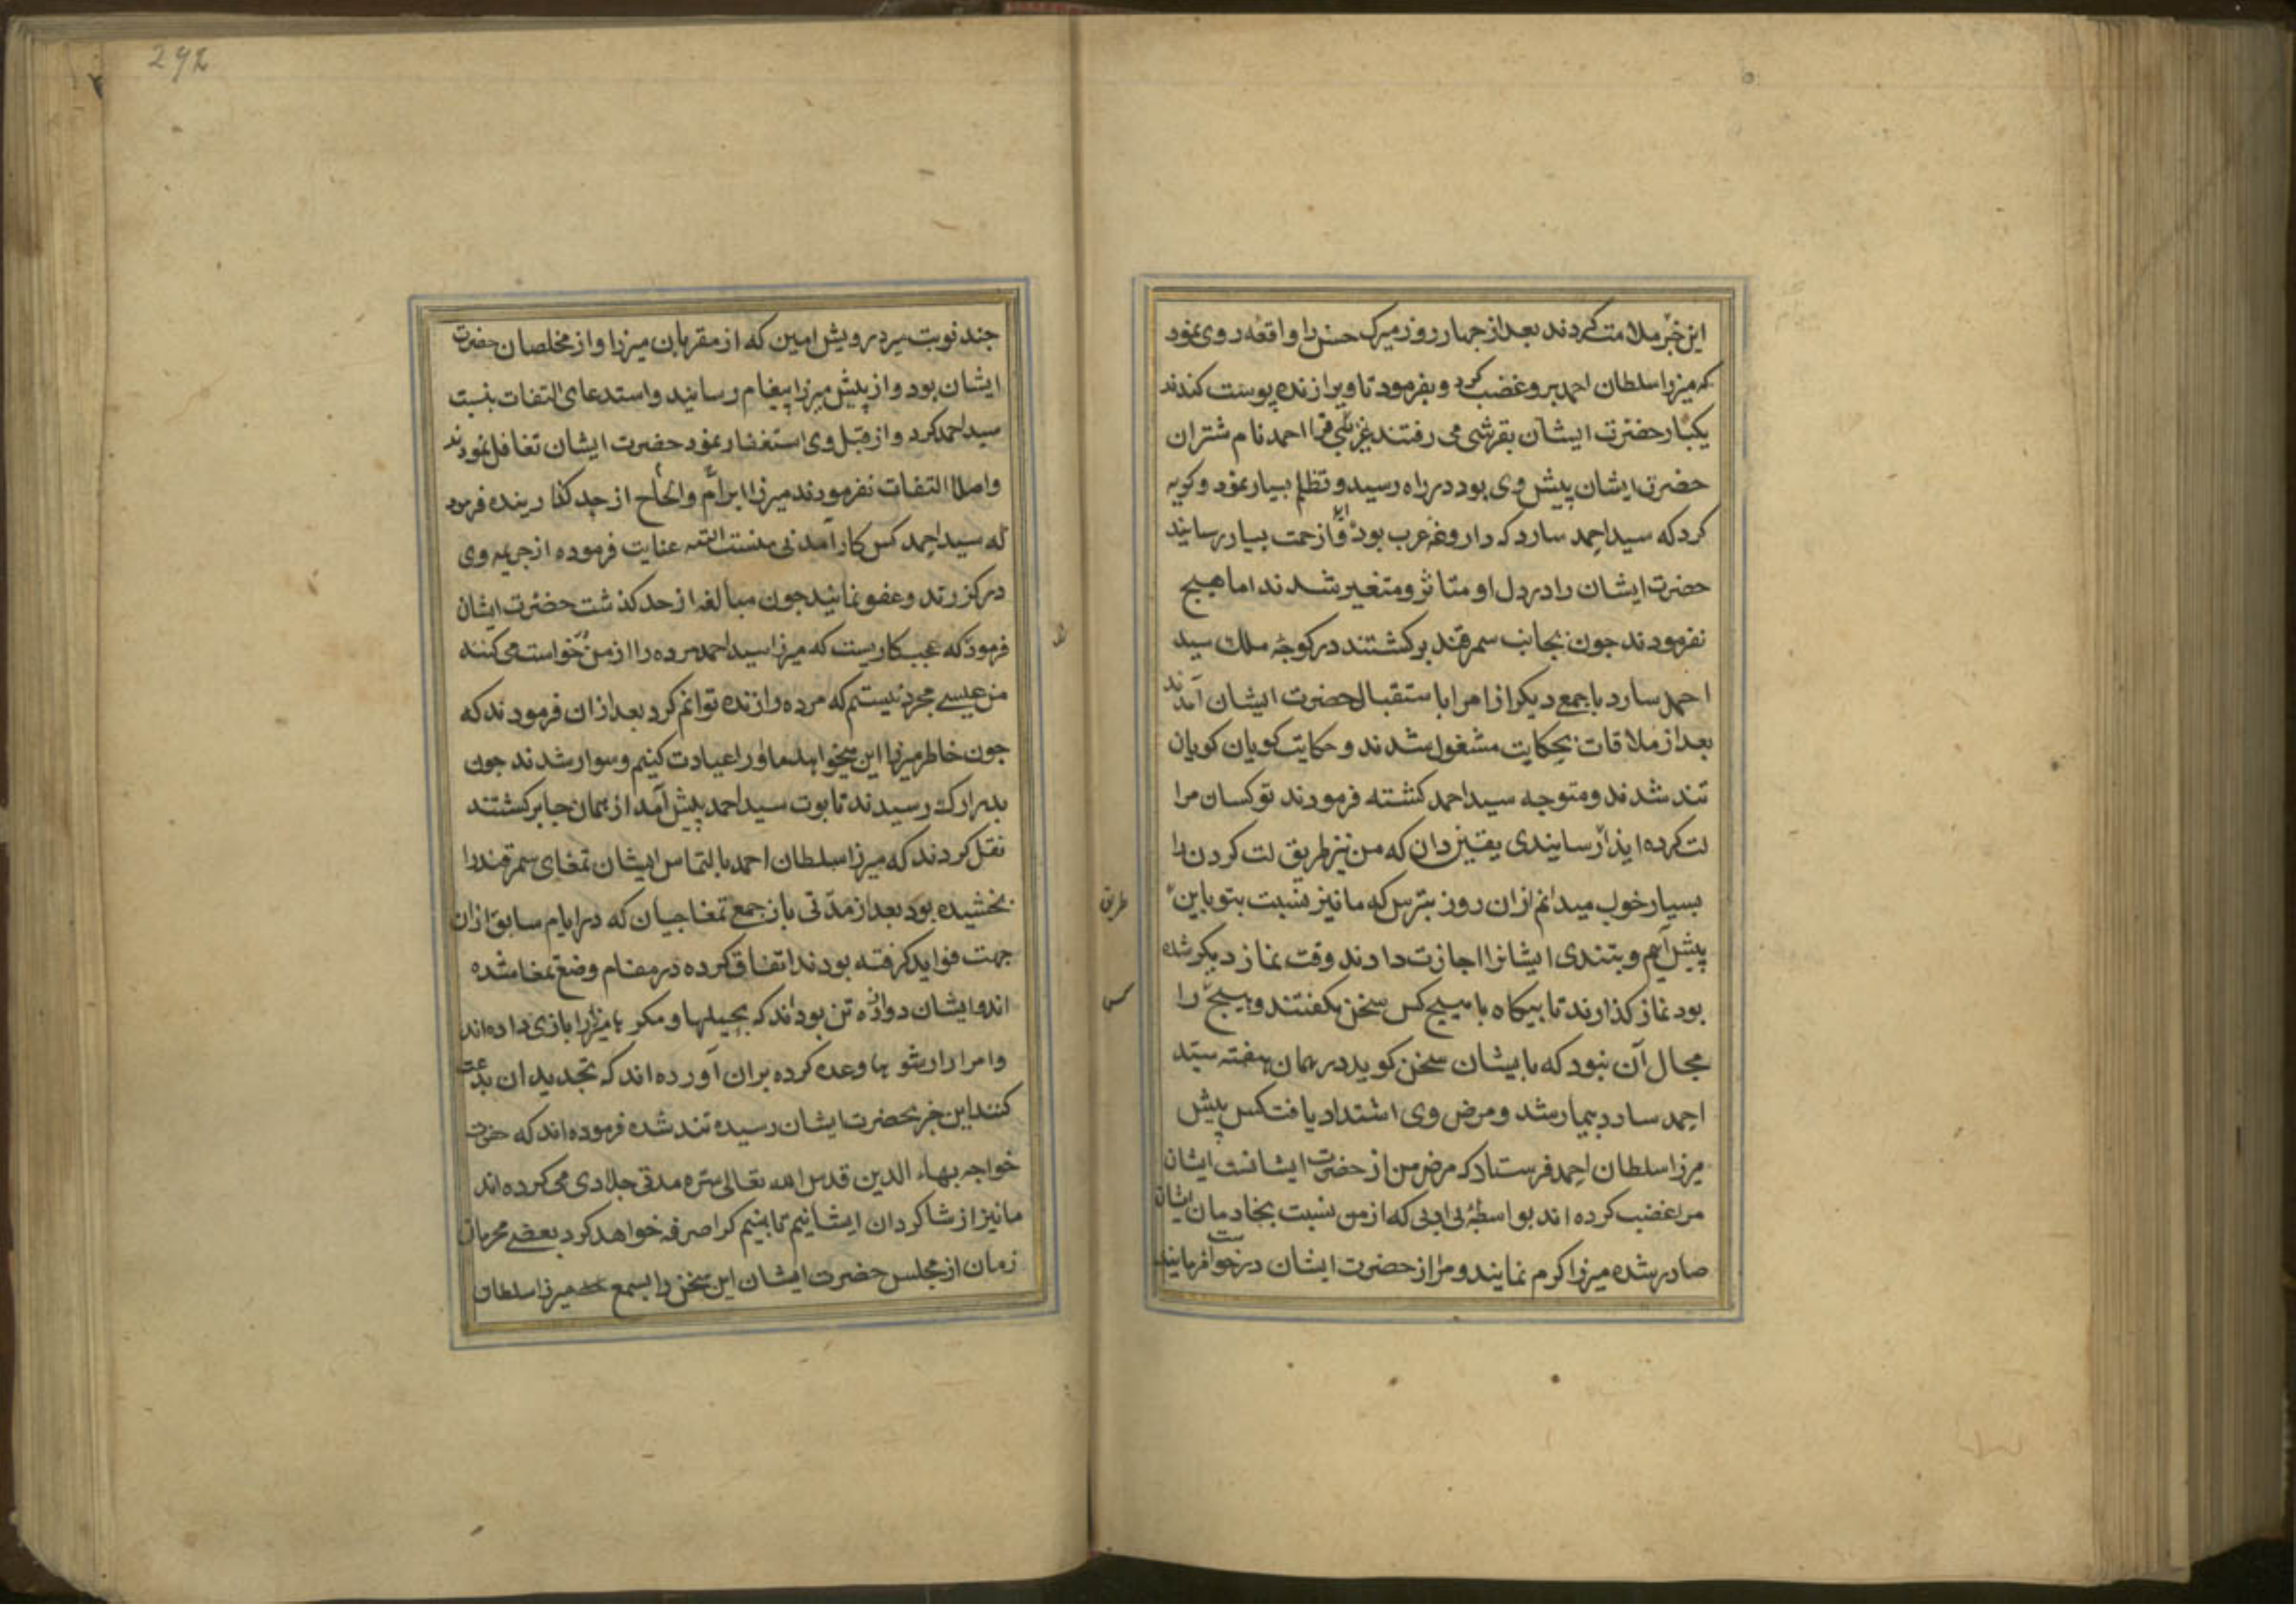 این خبر ملامت کردند بعد از جهار روز میرک حسن را واقعه روی نمود
که میرزا سلطان احمد برو غضب کرد و بفرمود تا ویرا زنده پوست کندند
یکبار حضرت ایشان بقرشی می رفتند قرا احمد نام شتران
حضرت ایشان پیش وی بود در راه رسید و تظلم بسیار نمود و کریه
کرد که سید احمد سارد که داروغه عرب بود زحمت بسیار رسانید
حضرت ایشان را در دل او متاثر و متغیر شدند اما هیج
نفرمودند جون بجانب سمرقند برکشتند در کوجهٔ ملک سید
احمد سارد با جمعی دیکر از امرا باستقبال حضرت ایشان آمدند
بعد از ملاقات بحکایت مشغول شدند و حکایت کویان کویان
تند شدند و متوجه سید احمد کشته فرمودند تو کسان مرا
لت کرده ایذا رسانیدی یقین دان که من نیز طریق لت کردن را
بسیار خوب میدانم از ان روز بترس که ما نیز نسبت بتو باین
طریق
پیش آیم و بتندی ایشانرا اجازت دادند وقت نماز دیکر شده
بود نماز کذاردند تا بیکاه با هیچ کس سخن نکفتند و هیچ را
کس
مجال آن نبود که با ایشان سخن کوید در همان هفته سید
احمد سارد بیمار شد و مرض وی اشتداد یافت کس پیش
میرزا سلطان احمد فرستاد که مرض من از حضرت ایشانست ایشان
مرا غضب کرده اند بواسطهٔ بی ادبی که از من نسبت بخادمان ایشان
صادر شده میرزا کرم نمایند و مرا از حضرت ایشان درخواست فرمایند
292
جند نوبت میر درویش امین که از مقربان میرزا و از مخلصان حضرت
ایشان بود و از پیش میرزا پیغام رسانید و استدعای التفات بنسبت
سید احمد کرد و از قبل وی استغفار نمود حضرت ایشان تغافل نمودند
و اصلا التفات نفرمودند میرزا ابرام و الحاح از حد کذارنیده فرمود
که سید احمد کس کار آمدنی هست البته عنایت فرموده از جریمه وی
درکزرند و عفو نمایند جون مبالغه از حد کذشت حضرت ایشان
فرمود که عجب کاریست که میرزا سید احمد مرده را از من خواست می کنند
من عیسی مجرد نیستم که مرده را زنده توانم کرد بعد از ان فرمودند که
جون خاطر میرزا این میخواهد ما او را عیادت کنیم و سوار شدند جون
بدر ارک رسیدند تابوت سید احمد پیش آمد از همان جا برکشتند
نقل کردند که میرزا سلطان احمد بالتماس ایشان تمغای سمرقند را
بخشیده بود بعد از مدتی باز جمع تمغاجیان که در ایام سابق از ان
جهت فواید کرفته بودند اتفاق کرده در مقام وضع تمغا شده
اند و ایشان دوازه تن بوده اند که بحیلها و مکرها میرزا را بازی داده اند
و امرا را رشوتها وعده کرده بران آورده اند که تجدید ان بدعت
کنند این خبر بحضرت ایشان رسیده تند شده فرموده اند که حضرت
خواجه بهاء الدین قدس الله تعالی سره مدتی جلادی می کرده اند
ما نیز از شاکردان ایشانیم تا بنیم کرا صرفه خواهد کرد بعضی محرمان
زمان از مجلس حضرت ایشان این سخن را بسمع میرزا سلطان